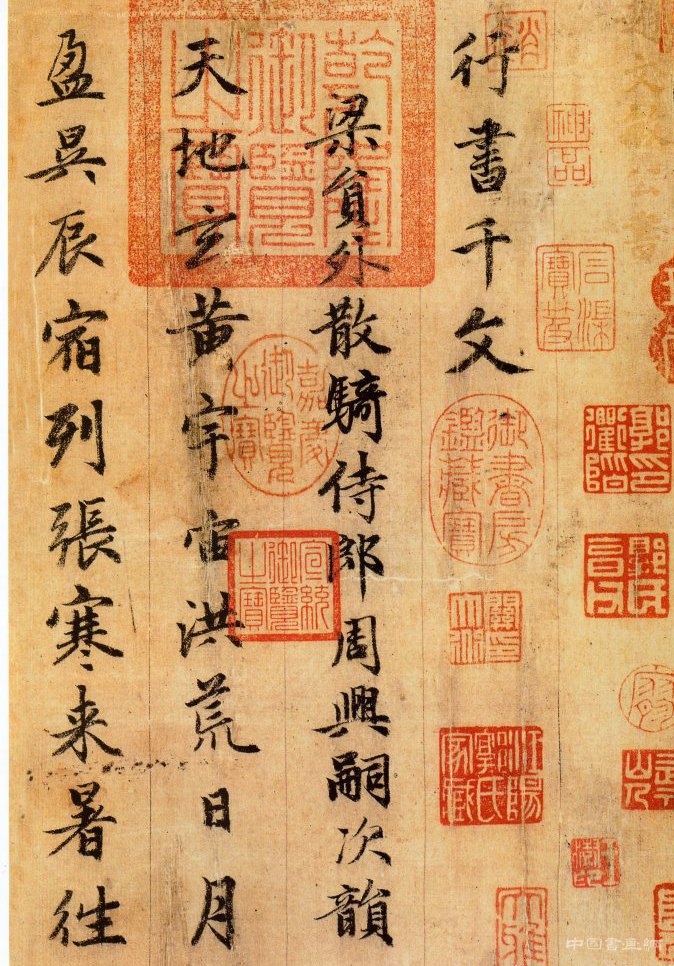 神品
石渠寶笈
行書千文
御書房鑑藏寶
乾隆御覽之寶
梁貟外散騎侍郎周興嗣次韻
嘉慶御覽之寶
宣統御覽之寶
天地玄黄宇宙洪荒日月
盈昃辰宿列張寒来暑往